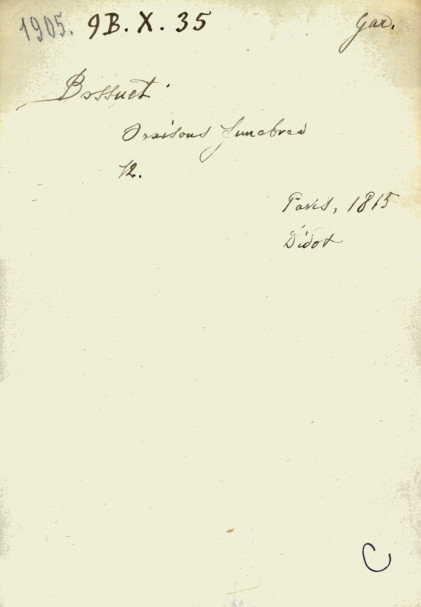 1905. 9B. X. 35 Gar.
Bossuet.
Oraisons funebres
12.
Paris, 1815
Didot
C